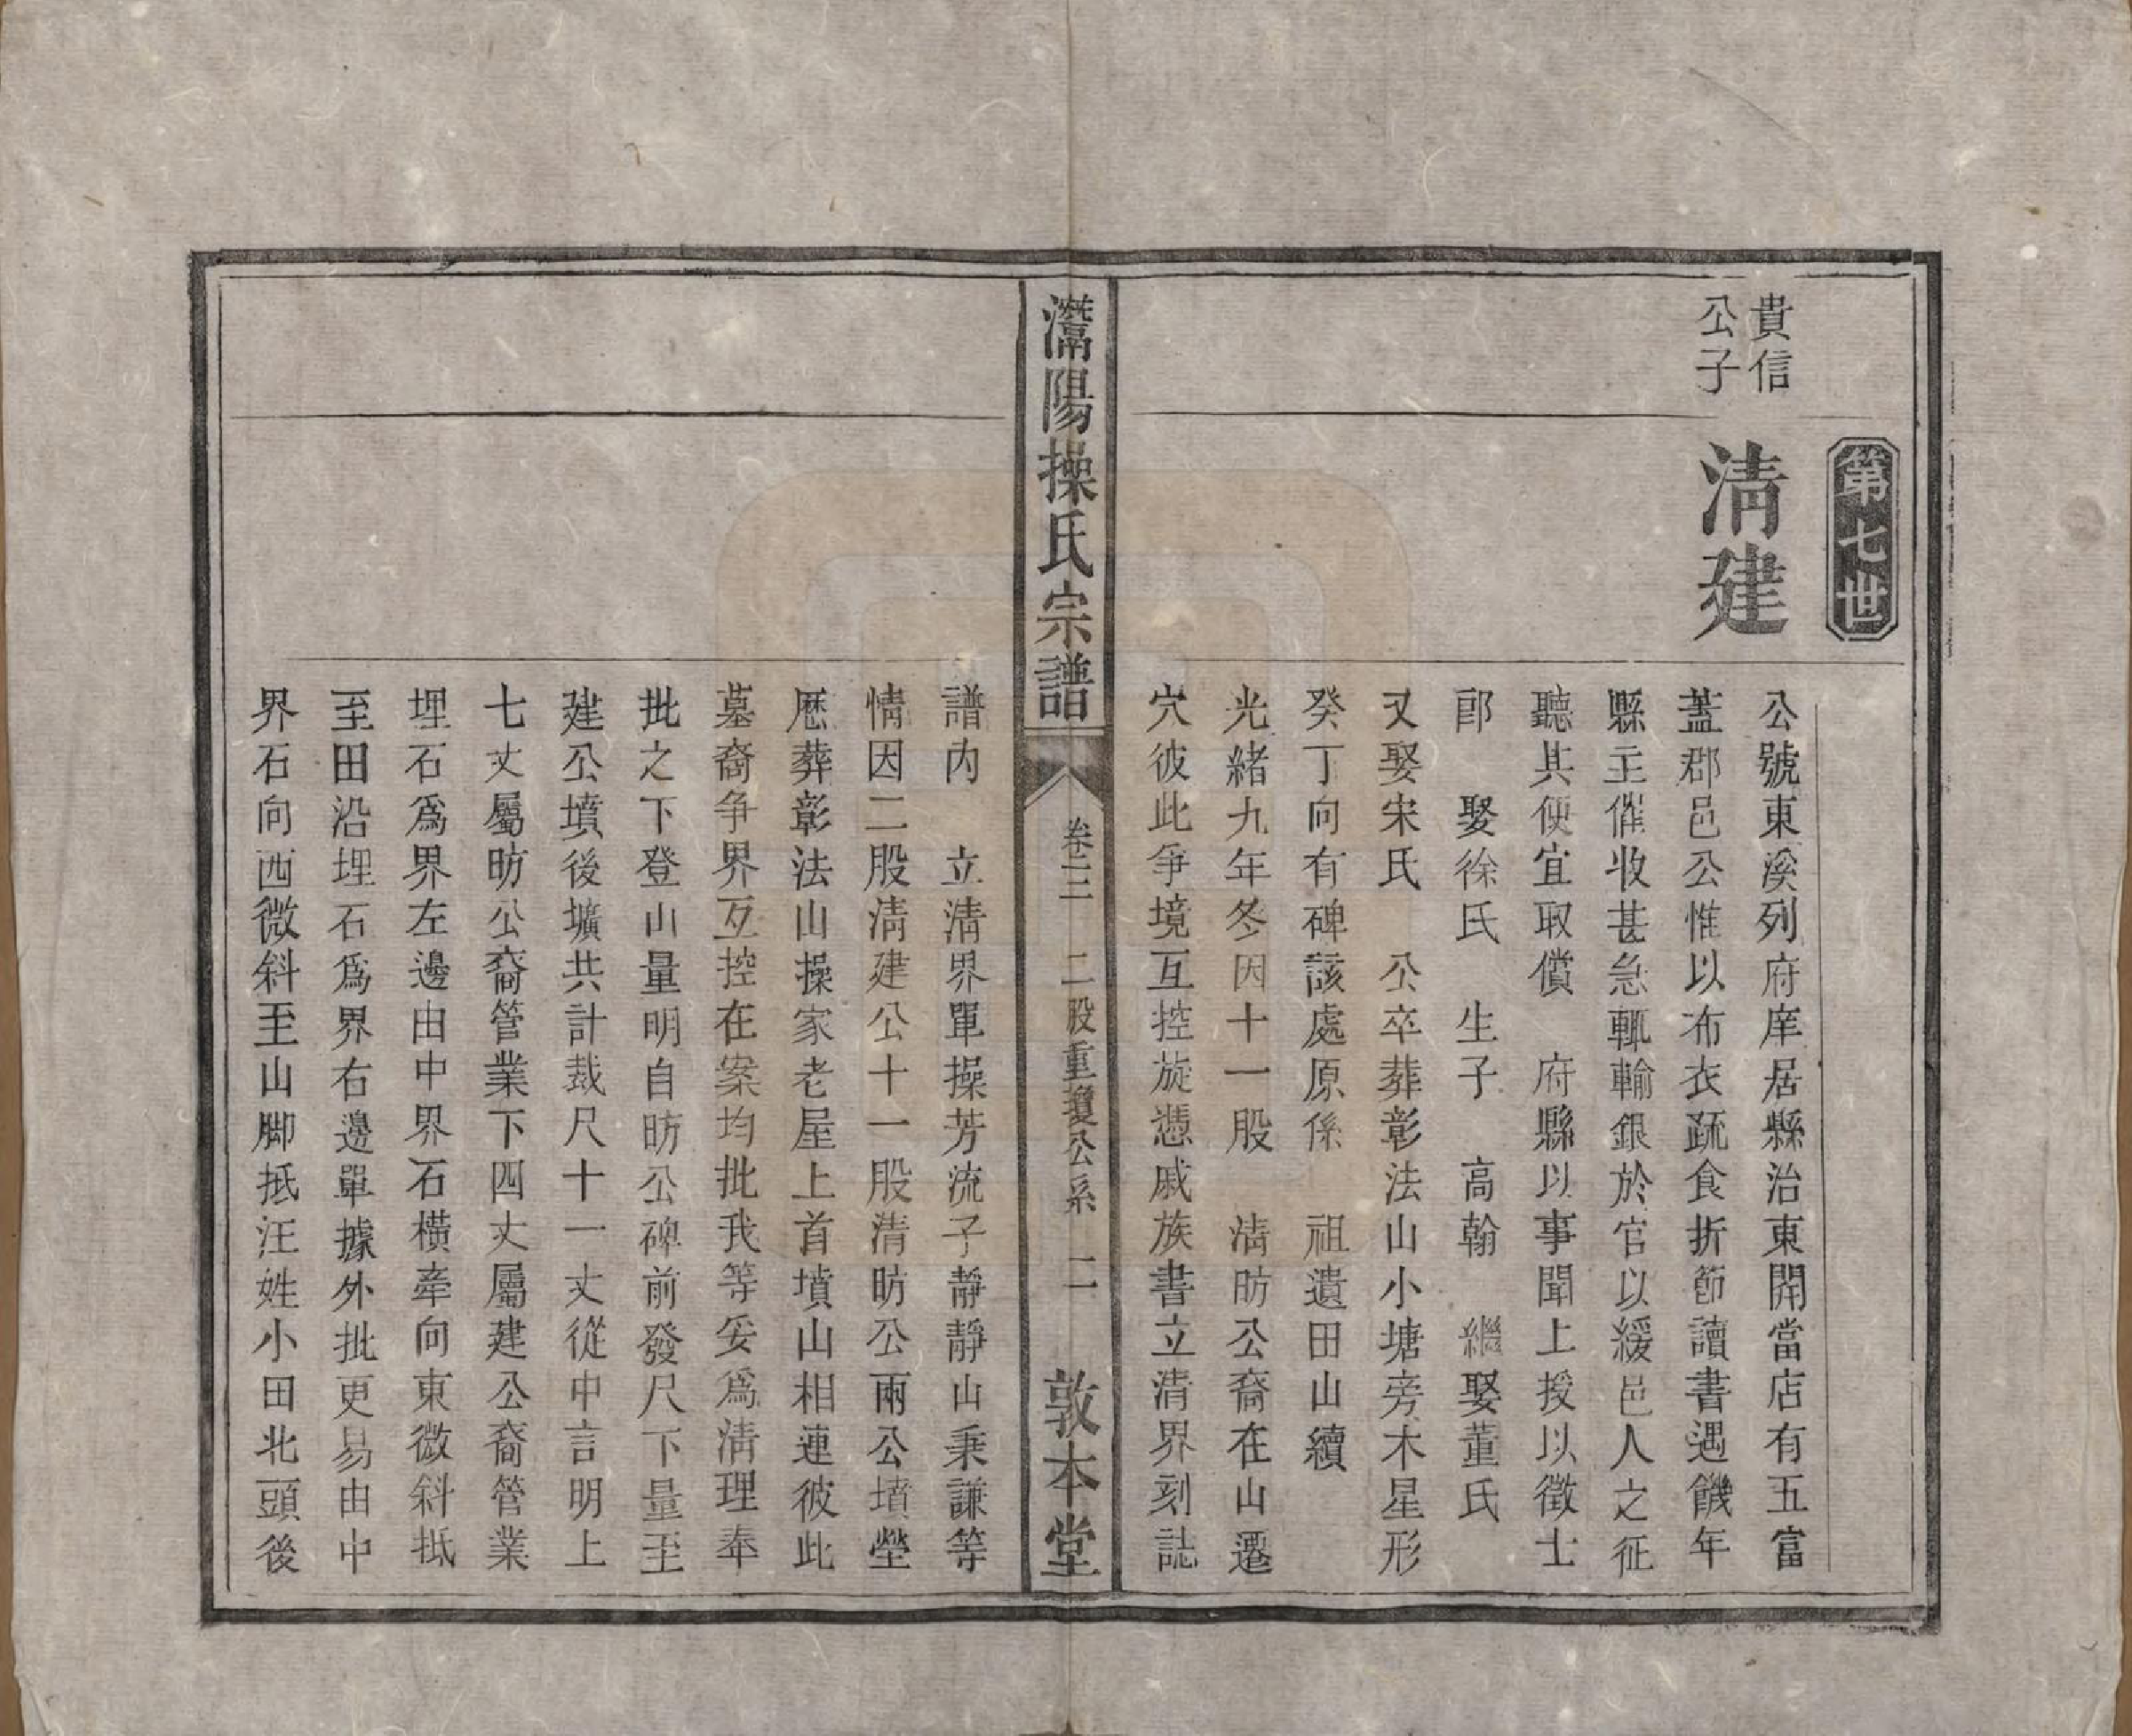 第七世
貴信
公子
淸建
公號東溪列府庠居縣治東開當店有五富
蓋郡邑公惟以布衣疏食折節讀書遇饑年
縣主催收甚急輒輸銀於官以緩邑人之征
聽其便宜取償　府縣以事聞上授以徵士
郎　娶徐氏　生子　高翰　繼娶董氏
又娶宋氏　公卒葬彰法山小塘旁木星形
癸丁向有碑該處原係　祖遺田山續
光緒九年冬因十一股　淸昉公裔在山遷
穴彼此爭境互控旋憑戚族書立清界刻誌
灊陽操氏宗譜
卷之三　二股重瓊公系　二
敦本堂
譜內　立淸界單操芳流子靜靜山秉謙等
情因二股淸建公十一股清昉公兩公墳塋
歷葬彰法山操家老屋上首墳山相連彼此
墓裔爭界互控在案均批我等妥爲淸理奉
批之下登山量明自昉公碑前發尺下量至
建公墳後壙共計裁尺十一丈從中言明上
七丈屬昉公裔管業下四丈屬建公裔管業
埋石爲界左邊由中界石橫牽向東微斜抵
至田沿埋石爲界右邊單據外批更易由中
界石向西微斜至山脚抵汪姓小田北頭後